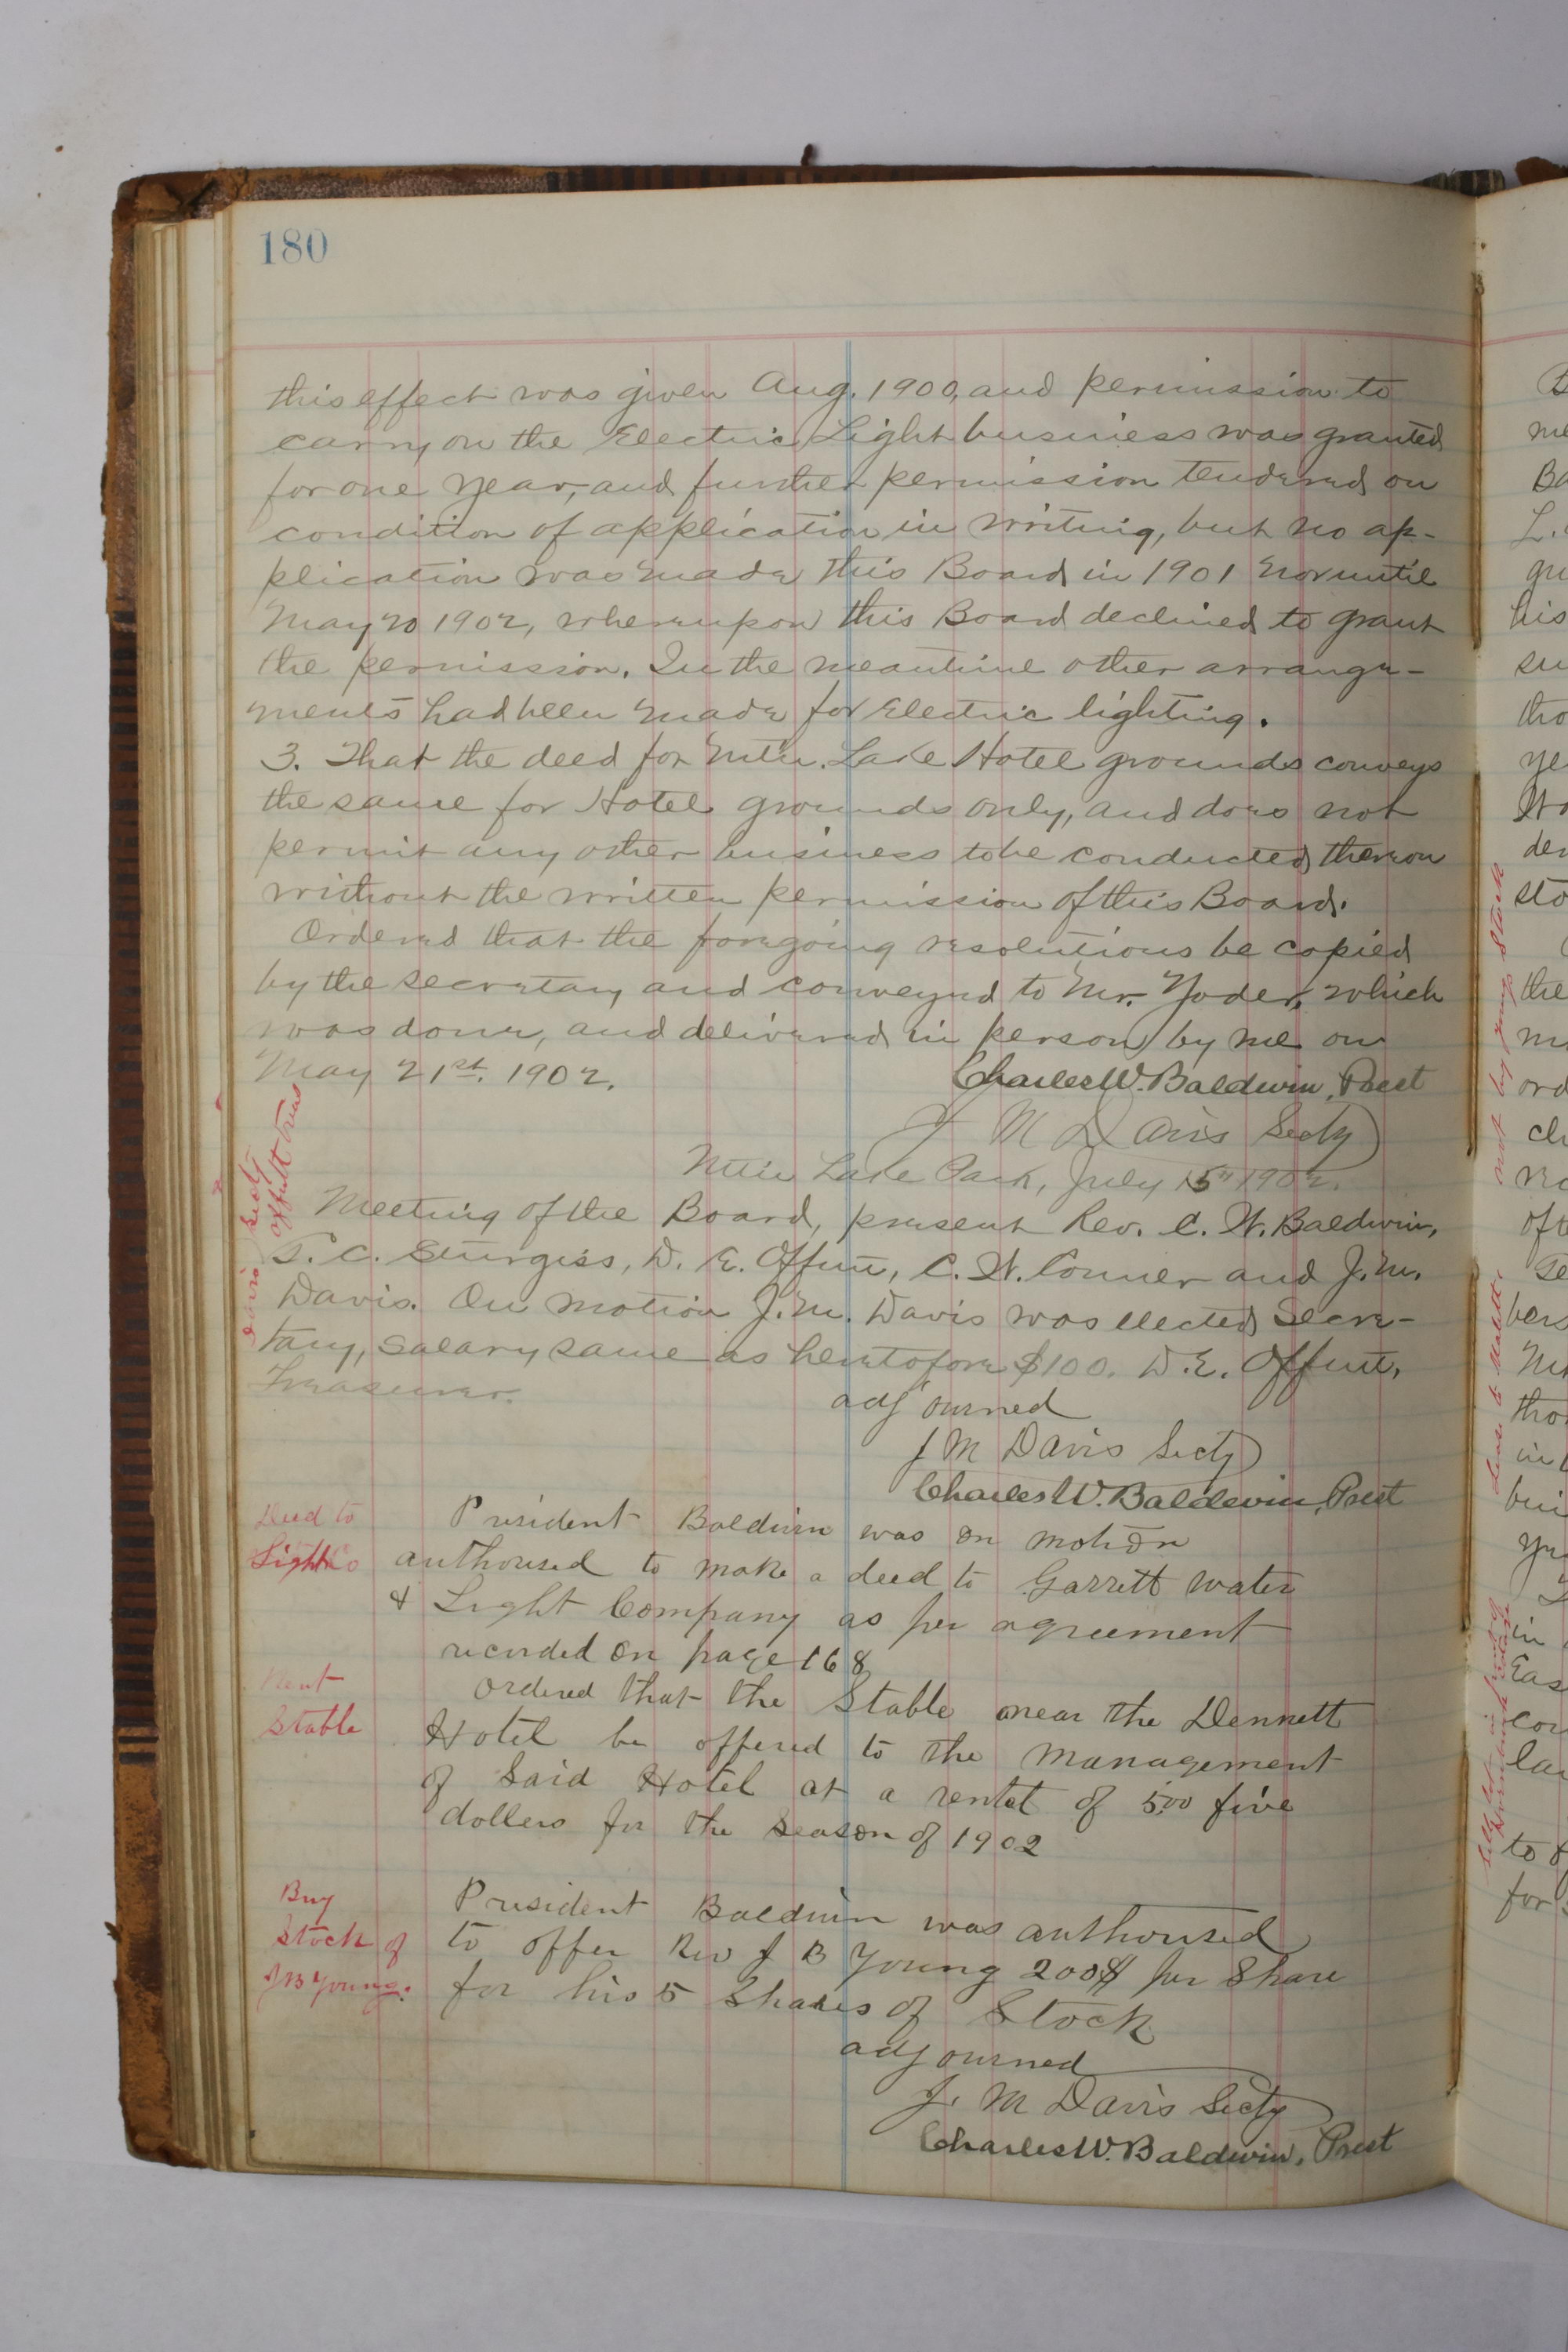 180
this effect was given Aug. 1900, and permission to
carry on the Electric Light business was granted
for one year, and further permission tendered on
condition of application in writing, but no ap-
plication was made this Board in 1901 nor until
May 20 1902, whereupon this Board declined to grant
the permission. In the meantime other arrange-
ments had been made for Electric lighting.
3. That the deed for Mtn. Lake Hotel grounds conveys
the same for Hotel grounds only, and does not
permit any other business to be conducted thereon
without the written permission of this Board.
Ordered that the foregoing resolutions be copied
by the secretary and conveyed to Mr. Yoder, which
was done, and delivered in person by me on
May 21st. 1902.
Charles W. Baldwin, Prest
J M Davis Secty
Mtn Lake Park, July 15th 1902.
Davis Secty
Offutt Treas
Meeting of the Board, present Rev. C. W. Baldwin,
T. C. Sturgiss, D. E. Offutt, C. W. Conner and J. M.
Davis. On motion J. M. Davis was elected Secre-
tary, salary same as heretofore $100. D. E. Offutt,
Treasurer.
adjourned
J M Davis Secty
Charles W. Baldwin, Prest
Deed to
Light Co
President Baldwin was on motion
authorised to make a deed to Garrett water
& Light Company as per agreement
recorded on page 168
Rent
Stable
ordered that the Stable near the Dennett
Hotel be offered to the management
of Said Hotel at a rentat of 5.00 five
dollers for the season of 1902
Buy
Stock of
J B Young.
President Baldwin was authorised
to offer Rev J B Young 200$ per Share
for his 5 Shares of Stock
adjourned
J. M Davis Secty
Charles W. Baldwin, Prest